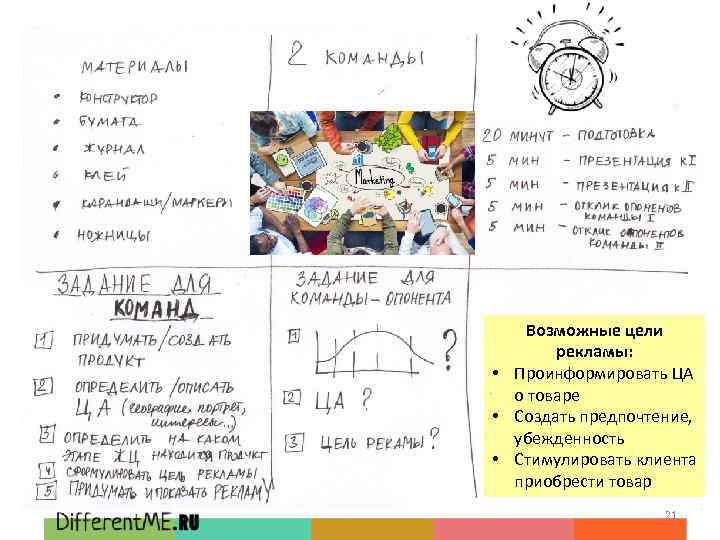 МАТЕРИАЛЫ
• КОНСТРУКТОР
• БУМАГА
• ЖУРНАЛ
• КЛЕЙ
• КАРАНДАШИ/МАРКЕРЫ
• НОЖНИЦЫ
2 КОМАНДЫ
Marketing
20 МИНУТ – ПОДГОТОВКА
5 МИН – ПРЕЗЕНТАЦИЯ К I
5 МИН – ПРЕЗЕНТАЦИЯ К II
5 МИН – ОТКЛИК ОПОНЕНТОВ
КОМАНДЫ I
5 МИН – ОТКЛИК ОПОНЕНТОВ
КОМАНДЫ II
ЗАДАНИЕ ДЛЯ
КОМАНД
1 ПРИДУМАТЬ/СОЗДАТЬ
ПРОДУКТ
2 ОПРЕДЕЛИТЬ/ОПИСАТЬ
ЦА (география, портрет,
интересы...)
3 ОПРЕДЕЛИТЬ НА КАКОМ
ЭТАПЕ ЖЦ НАХОДИТСЯ ПРОДУКТ
4 СФОРМУЛИРОВАТЬ ЦЕЛЬ РЕКЛАМЫ
5 ПРИДУМАТЬ И ПОКАЗАТЬ РЕКЛАМУ
ЗАДАНИЕ ДЛЯ
КОМАНДЫ – ОПОНЕНТА
1 ?
2 ЦА ?
3 ЦЕЛЬ РЕКАМЫ ?
Возможные цели
рекламы:
• Проинформировать ЦА
о товаре
• Создать предпочтение,
убежденность
• Стимулировать клиента
приобрести товар
21
DifferentME.RU